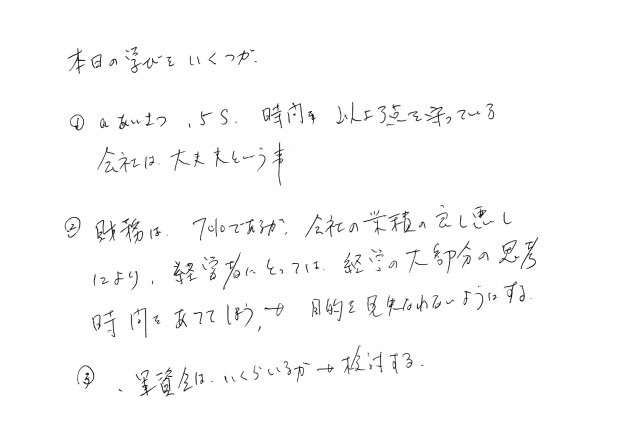 本日の学びを いくつか.
① あいさつ、5S. 時間を 以上3点を守っている
会社は 大丈夫という事
② 財務は. 7%であるが、会社の業績の良し悪し
により、経営者にとっては、経営の大部分の思考
時間をあててしまう, → 目的を見失なわないようにする.
③ 、軍資金は、いくらいるか → 検討する.